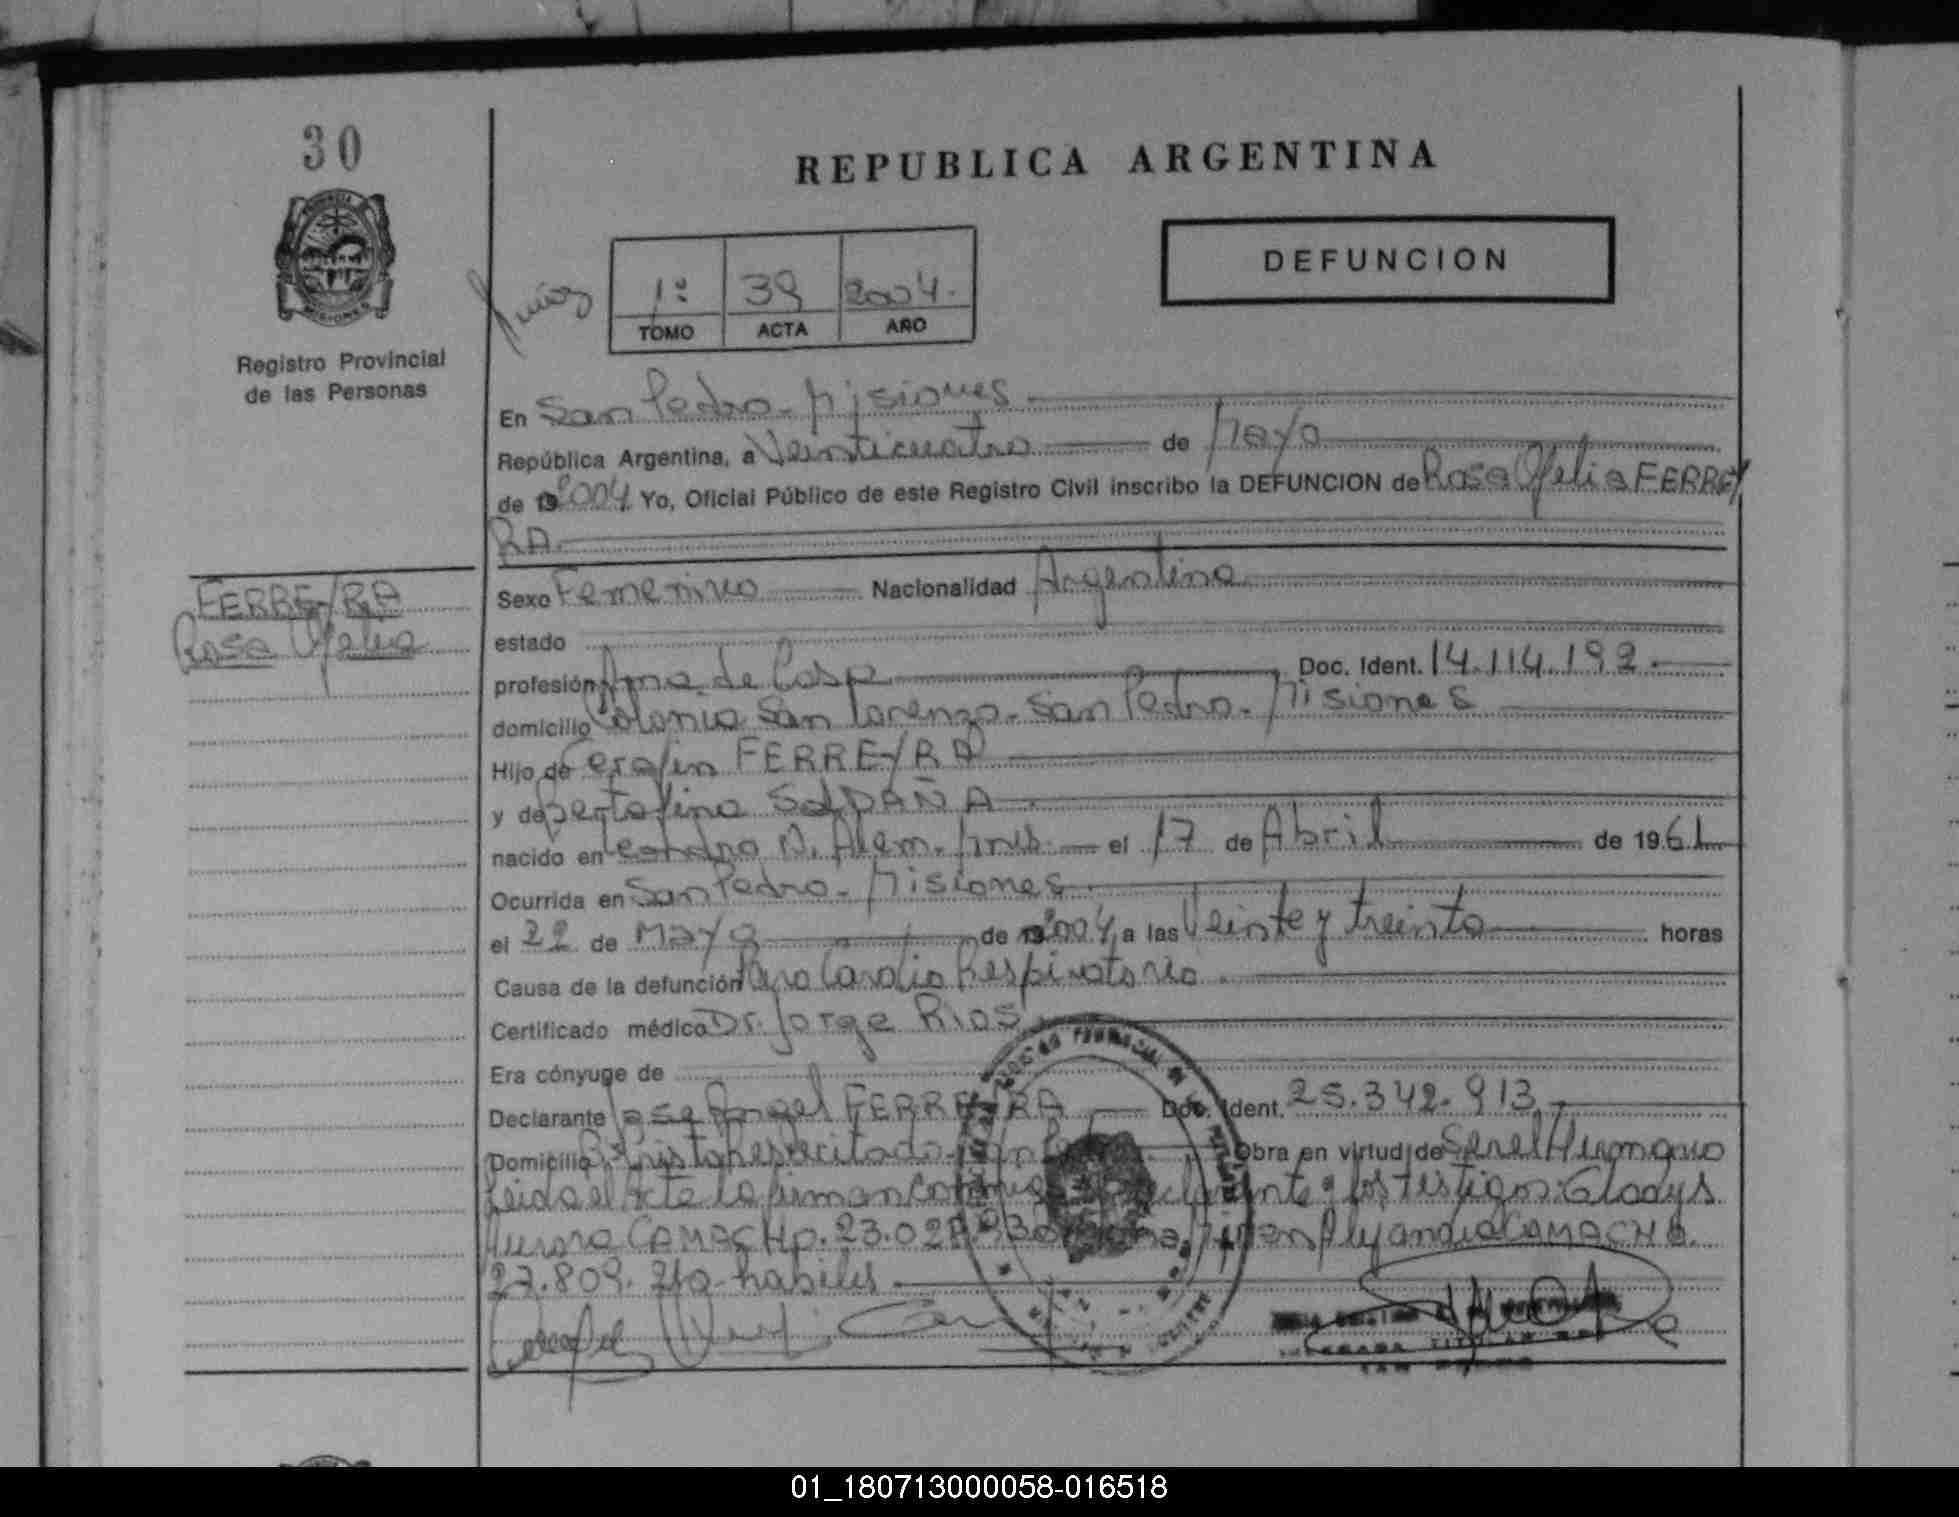 30
REPUBLICA ARGENTINA
DEFUNCION
1º 39 2004.
TOMO ACTA AÑO
Registro Provincial
de las Personas
En San Pedro - Misiones
República Argentina, a Veinticuatro de Mayo
de 19 2004 Yo, Oficial Público de este Registro Civil inscribo la DEFUNCION de Rosa Ofelia FERREY
RA.
FERREYRA
Rosa Ofelia
Sexo Femenino Nacionalidad Argentina
estado
profesión Ama de Casa Doc. Ident. 14.114.192.
domicilio Colonia San Lorenzo - San Pedro - Misiones
Hijo de Serafin FERREYRA
y de Bertolina SALDAÑA
nacido en Leandro N. Alem - Mnes. el 17 de Abril de 1961
Ocurrida en San Pedro - Misiones
el 22 de Mayo de 19 2004 a las Veinte y treinta horas
Causa de la defunción Paro Cardio Respiratorio
Certificado médico Dr. Jorge RIOS
Era cónyuge de
Declarante Jose Angel FERREYRA Doc. Ident. 25.342.913
Domicilio Bº Cristo Resucitado - Obra en virtud de Ser el Hermano
Leida el Acta la firman conmigo declarante y los testigos: Gladys
Aurora CAMACHO. 23.02 Alejandra CAMACHO.
27.809. habiles
01_180713000058-016518